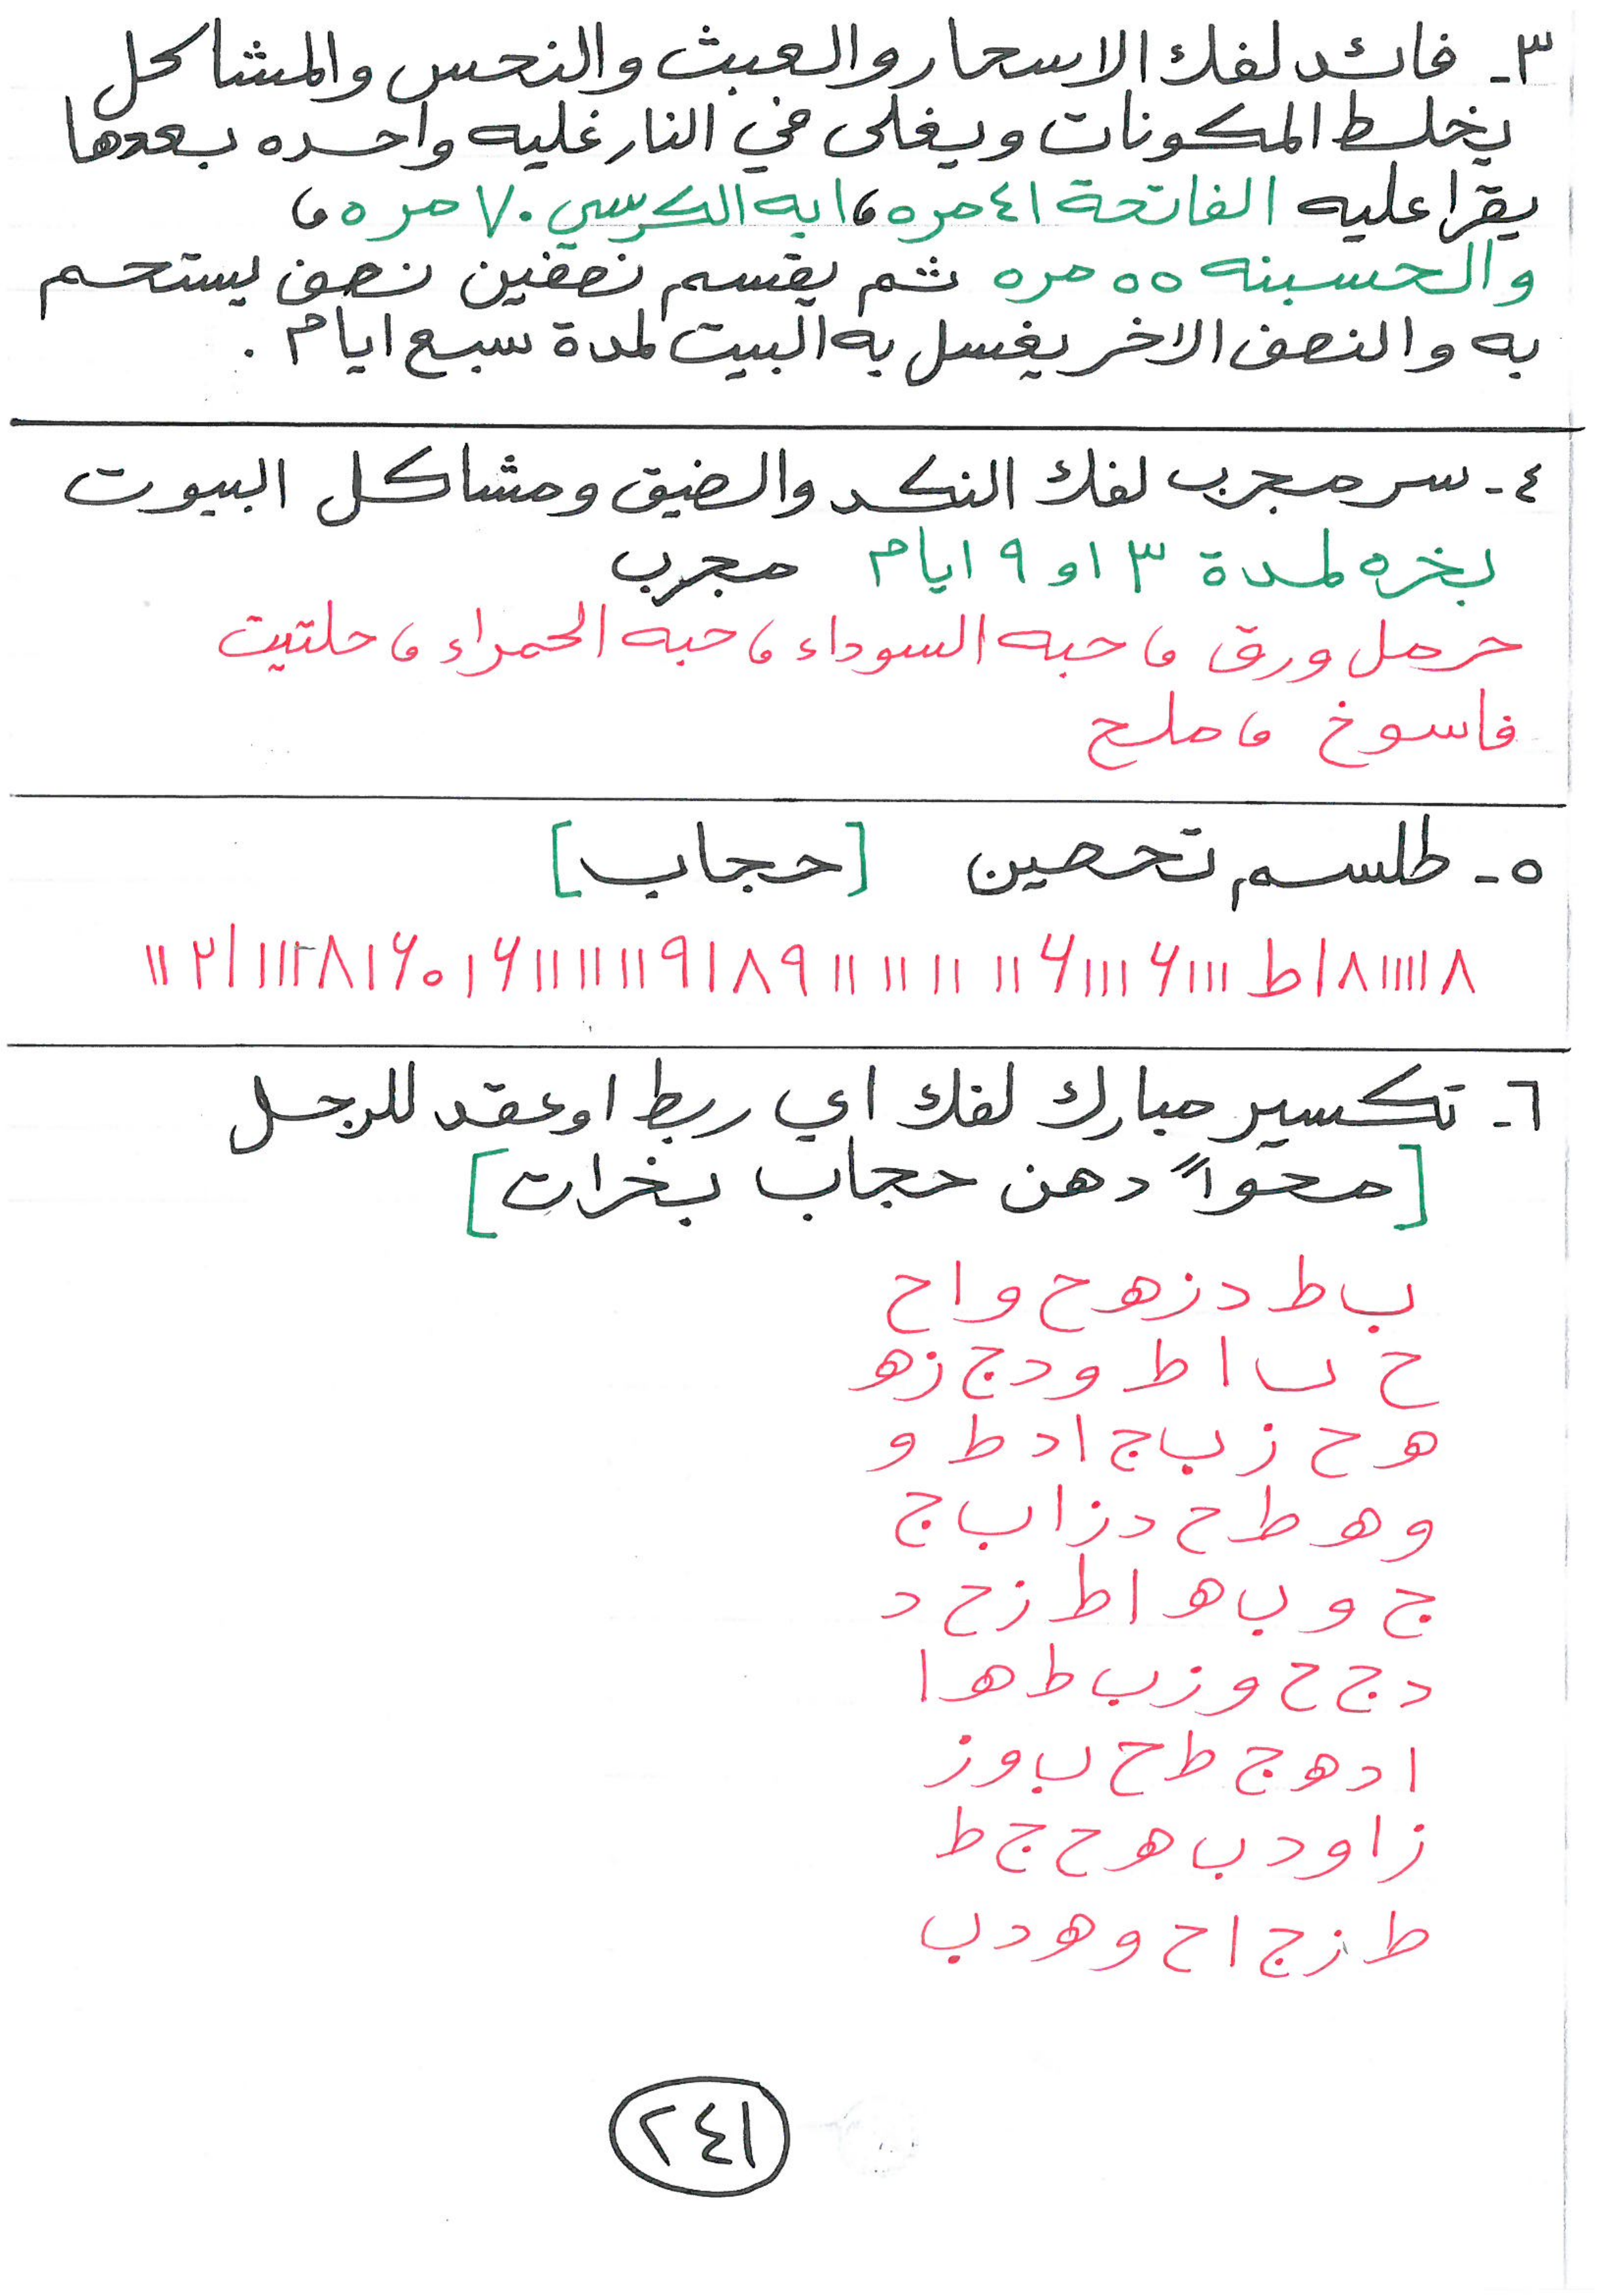 ٣- فائد لفك الاسحار والعبث والنحس والمشاكل
يخلط المكونات ويغلى في النار غليه واحده بعدها
يقرا عليه الفاتحة ٤١ مره ، ايه الكرسي ٧٠ مره ،
والحسبنه ٥٥ مره ثم يقسم نصفين نصف يستحم
به والنصف الاخر يغسل به البيت لمدة سبع ايام .
٤- سر مجرب لفك النكد والضيق ومشاكل البيوت
بخره لمدة ٣ او ٩ ايام مجرب
حرمل ورق ، حبه السوداء ، حبه الحمراء ، حلتيت
فاسوخ ، ملح
٥- طلسم تحصين [حجاب]
٦- تكسير مبارك لفك اي ربط او عقد للرجل
[محواً دهن حجاب بخرات]
ب ط د ز ه ح و ا ح
ح ٮ ا ط و د ج ز ه
ه ح ز ب ج ا د ط و
و ه ط ح د ز ا ب ج
ج و ب ه ا ط ز ح د
د ج ح و ز ب ط ه ا
ا د ه ج ط ح ب و ز
ز ا و د ب ه ح ج ط
ط ز ج ا ح و ه د ب
٢٤١